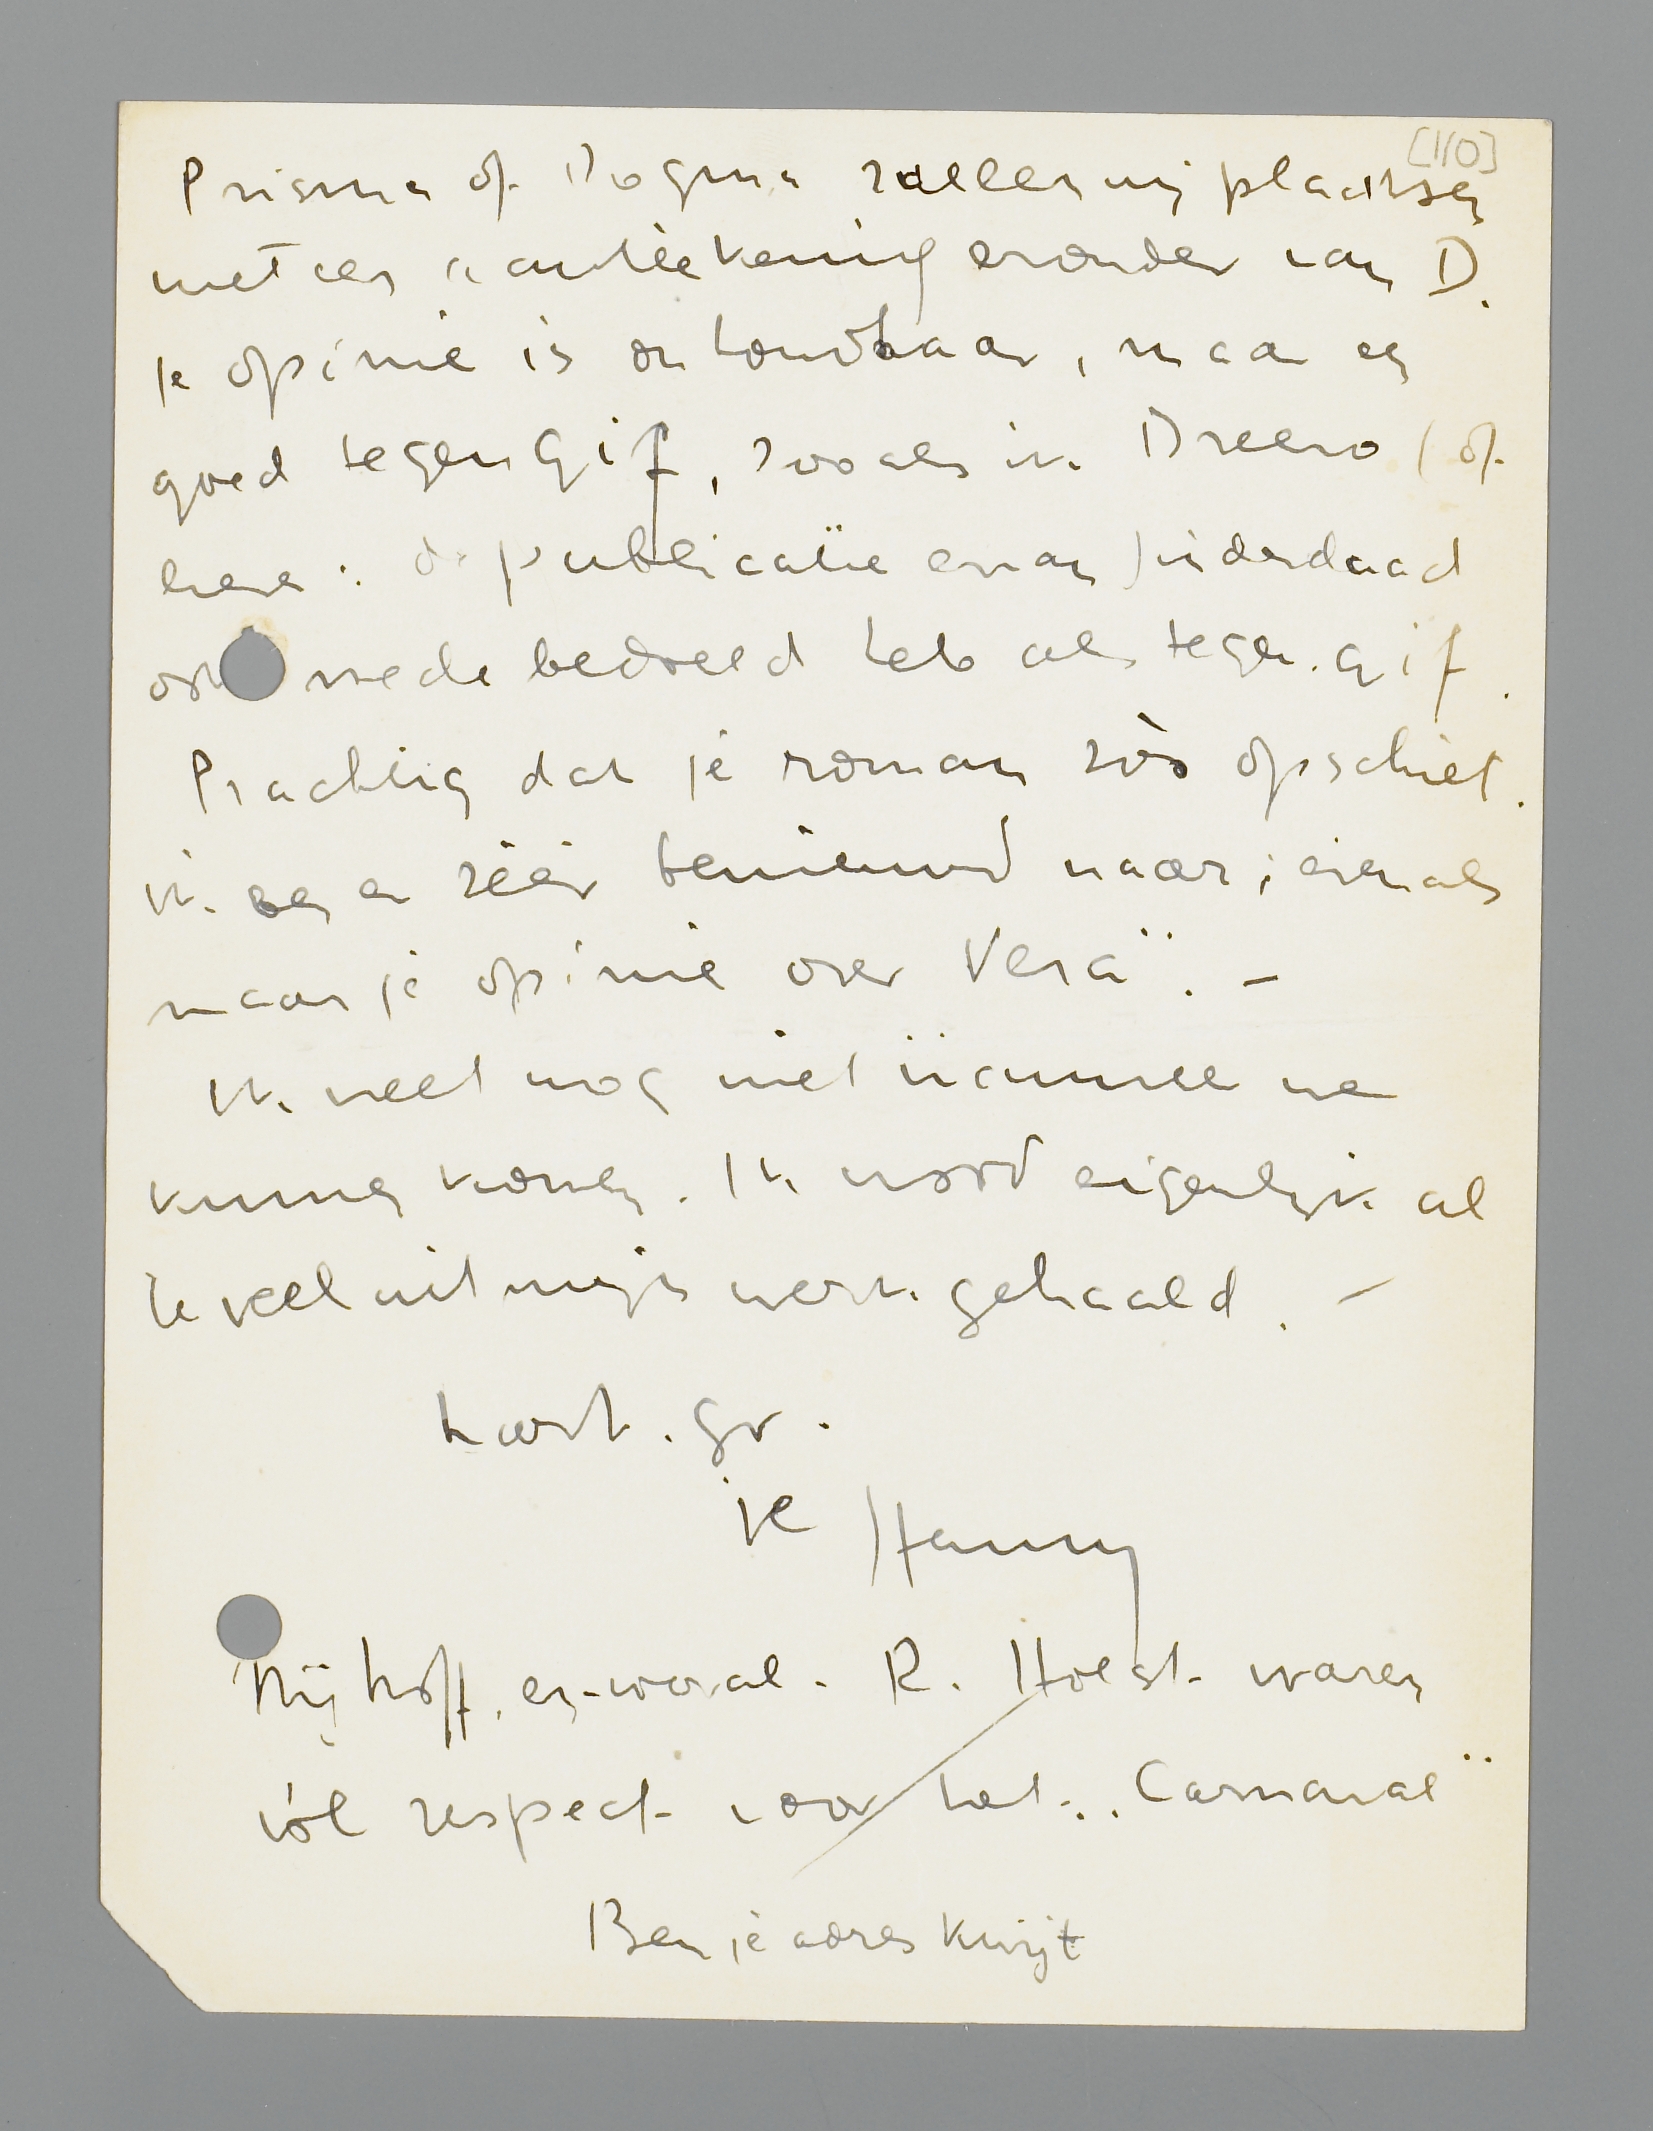 [110]
Prisma of Dogma zullen wij plaatsen
met een aanteekening eronder van D.
Je opinie is onhoudbaar, maar een
goed tegengif, zooals ik Dreero (of
liever: de publicatie ervan) inderdaad
ook mede bedoeld heb als tegengif.
Prachtig dat je roman zóó opschiet.
Ik ben er zéér benieuwd naar; evenals
naar je opinie over Vera". —
Ik weet nog niet wanneer we
kunnen komen. Ik word eigenlijk al
te veel uit mijn werk gehaald. —
hart. gr.
je Hanny
Nijhoff, en vooral R. Holst waren
vól respect voor het „Carnaval"
Ben je adres kwijt